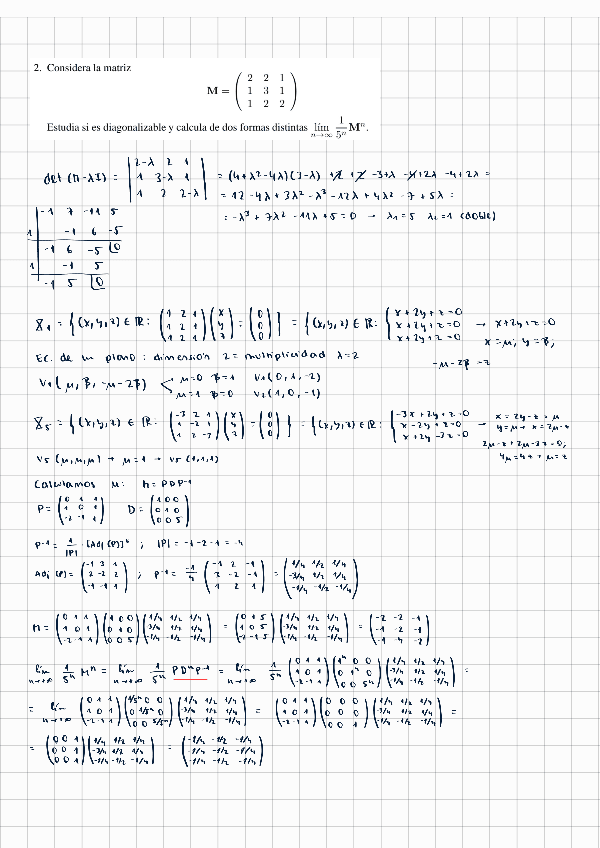 2. Considera la matriz
M = ( 2 2 1 ; 1 3 1 ; 1 2 2 )
Estudia si es diagonalizable y calcula de dos formas distintas lím n→∞ 1/5ⁿ Mⁿ.
det (M-λI) = | 2-λ 2 1 ; 1 3-λ 1 ; 1 2 2-λ | = (4+λ²-4λ)(3-λ) +2 +2 -3+λ -4+2λ -4+2λ =
= 12 -4λ + 3λ² -λ³ -12λ + 4λ² -7 + 5λ =
= -λ³ + 7λ² -11λ + 5 = 0 → λ₁=5 λ₂=1 (doble)
-1 7 -11 5
1 -1 6 -5
-1 6 -5 0
1 -1 5
-1 5 0
X₁ = { (x,y,z) ∈ R: ( 1 2 1 ; 1 2 1 ; 1 2 1 ) ( x ; y ; z ) = ( 0 ; 0 ; 0 ) } = { (x,y,z) ∈ R: { x+2y+z=0 ; x+2y+z=0 ; x+2y+z=0 → x+2y+z=0
x=μ; y=β;
-μ-2β=z
Ec. de un plano: dimensión 2 = multiplicidad λ=2
V₁ (μ, β, -μ-2β) < μ=0 β=1 V₁(0,1,-2)
μ=1 β=0 V₂(1,0,-1)
X₅ = { (x,y,z) ∈ R: ( -3 2 1 ; 1 -2 1 ; 1 2 -3 ) ( x ; y ; z ) = ( 0 ; 0 ; 0 ) } = { (x,y,z) ∈ R: { -3x+2y+z=0 ; x-2y+z=0 ; x+2y-3z=0 → x=2y-z=μ
2μ-z+2μ-3z=0;
V₅ (μ,μ,μ) → μ=1 → V₅ (1,1,1)
Calculamos M: M = PDP⁻¹
P = ( 0 1 1 ; 1 0 1 ; -2 -1 1 ) D = ( 1 0 0 ; 0 1 0 ; 0 0 5 )
P⁻¹ = 1/|P| · [Adj (P)]ᵗ ; |P| = -1-2-1 = -4
Adj (P) = ( -1 3 1 ; 2 -2 2 ; -1 -1 1 ) ; P⁻¹ = -1/4 ( -1 2 -1 ; 3 -2 -1 ; 1 2 1 ) = ( 1/4 1/2 1/4 ; -3/4 1/2 1/4 ; -1/4 -1/2 -1/4 )
M = ( 0 1 1 ; 1 0 1 ; -2 -1 1 ) ( 1 0 0 ; 0 1 0 ; 0 0 5 ) ( 1/4 1/2 1/4 ; -3/4 1/2 1/4 ; -1/4 -1/2 -1/4 ) = ( 0 1 5 ; 1 0 5 ; -2 -1 5 ) ( 1/4 1/2 1/4 ; -3/4 1/2 1/4 ; -1/4 -1/2 -1/4 ) = ( -2 -2 -1 ; -1 -2 -1 ; -1 -4 -2 )
lím n→+∞ 1/5ⁿ Mⁿ = lím n→+∞ 1/5ⁿ PDⁿP⁻¹ = lím n→+∞ 1/5ⁿ ( 0 1 1 ; 1 0 1 ; -2 -1 1 ) ( 1ⁿ 0 0 ; 0 1ⁿ 0 ; 0 0 5ⁿ ) ( 1/4 1/2 1/4 ; -3/4 1/2 1/4 ; -1/4 -1/2 -1/4 ) =
= lím n→+∞ ( 0 1 1 ; 1 0 1 ; -2 -1 1 ) ( 1/5ⁿ 0 0 ; 0 1/5ⁿ 0 ; 0 0 5/5ⁿ ) ( 1/4 1/2 1/4 ; -3/4 1/2 1/4 ; -1/4 -1/2 -1/4 ) = ( 0 1 1 ; 1 0 1 ; -2 -1 1 ) ( 0 0 0 ; 0 0 0 ; 0 0 1 ) ( 1/4 1/2 1/4 ; -3/4 1/2 1/4 ; -1/4 -1/2 -1/4 ) =
= ( 0 0 1 ; 0 0 1 ; 0 0 1 ) ( 1/4 1/2 1/4 ; -3/4 1/2 1/4 ; -1/4 -1/2 -1/4 ) = ( -1/4 -1/2 -1/4 ; -1/4 -1/2 -1/4 ; -1/4 -1/2 -1/4 )